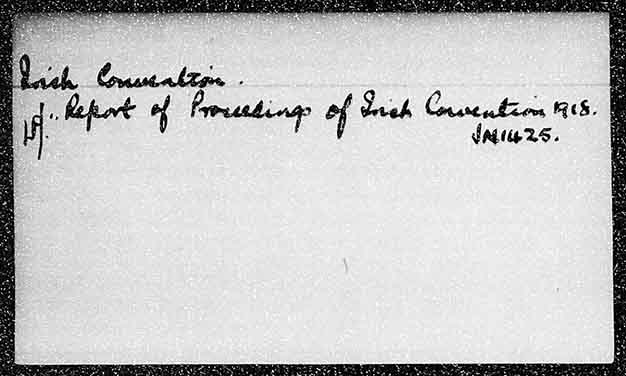 Irish Convention.
Report of Proceedings of Irish Convention 1918.
JN1425.